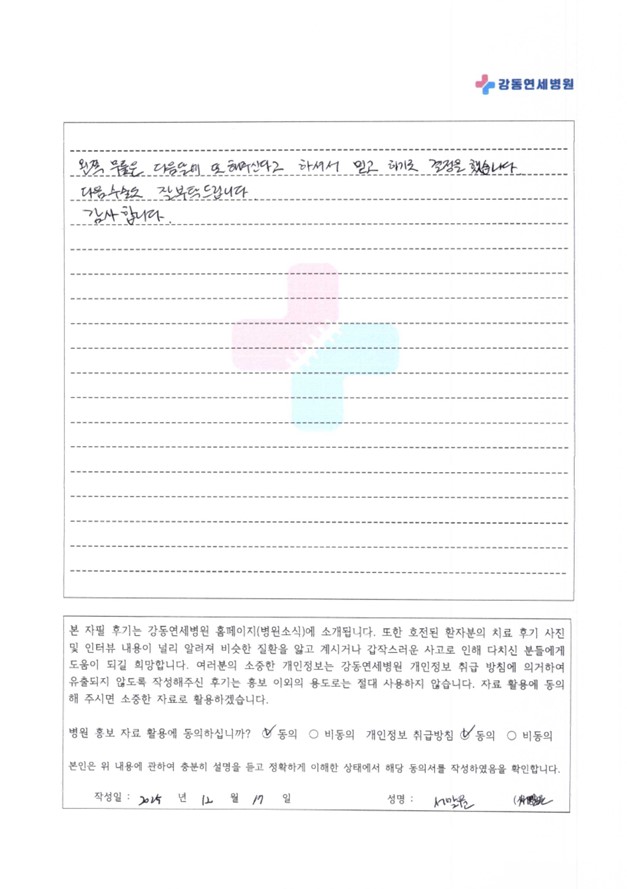 강동연세병원
왼쪽 무릎은 다음달에 또 해주신다고 하셔서 믿고 하기로 결정을 했습니다
다음 수술도 잘 부탁드립니다
감사합니다.
본 자필 후기는 강동연세병원 홈페이지(병원소식)에 소개됩니다. 또한 호전된 환자분의 치료 후기 사진
및 인터뷰 내용이 널리 알려져 비슷한 질환을 앓고 계시거나 갑작스러운 사고로 인해 다치신 분들에게
도움이 되길 희망합니다. 여러분의 소중한 개인정보는 강동연세병원 개인정보 취급 방침에 의거하여
유출되지 않도록 작성해주신 후기는 홍보 이외의 용도로는 절대 사용하지 않습니다. 자료 활용에 동의
해 주시면 소중한 자료로 활용하겠습니다.
병원 홍보 자료 활용에 동의하십니까? 동의 비동의 개인정보 취급방침 동의 비동의
본인은 위 내용에 관하여 충분히 설명을 듣고 정확하게 이해한 상태에서 해당 동의서를 작성하였음을 확인합니다.
작성일 : 2025 년 12 월 17 일 성명 :